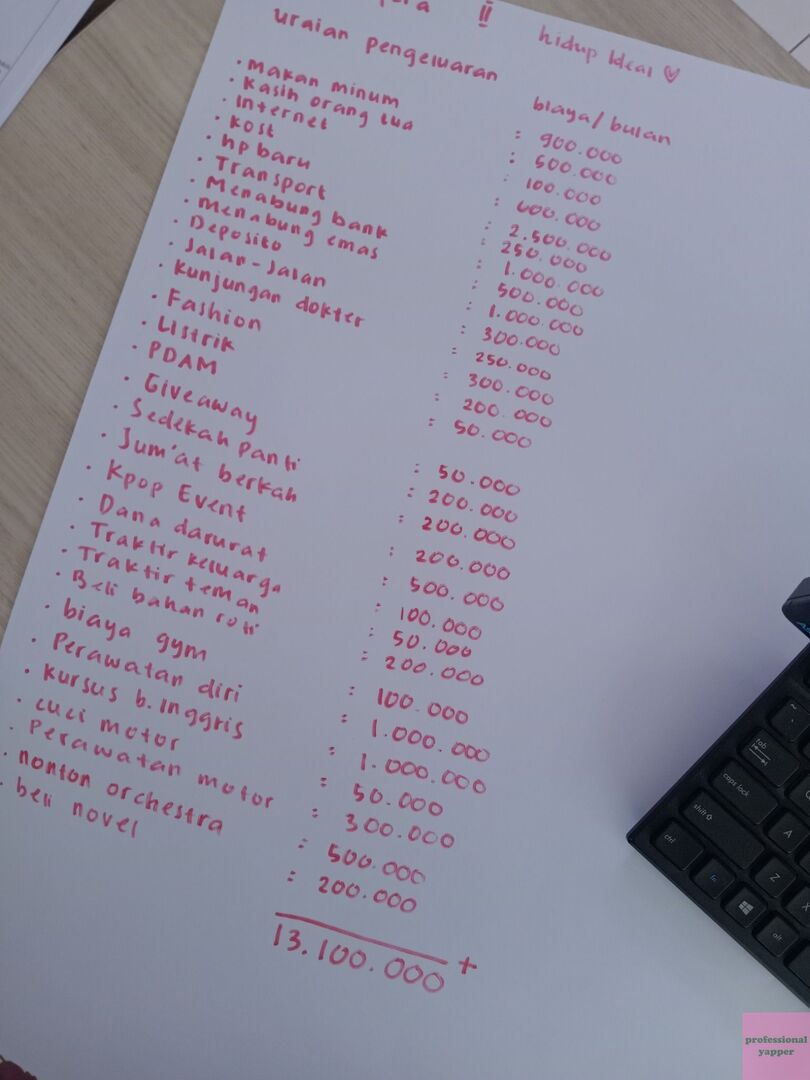 !! hidup Ideal
uraian pengeluaran biaya/bulan
• Makan minum : 900.000
• Kasih orang tua : 500.000
• Internet : 100.000
• Kost : 600.000
• hp baru : 2.500.000
• Transport : 250.000
• Menabung bank : 1.000.000
• Menabung emas : 500.000
• Deposito : 1.000.000
• Jalan-Jalan : 300.000
• Kunjungan dokter : 250.000
• Fashion : 300.000
• Listrik : 200.000
• PDAM : 50.000
• Giveaway : 50.000
• Sedekah Panti : 200.000
• Jum'at berkah : 200.000
• Kpop Event : 200.000
• Dana darurat : 500.000
• Traktir keluarga : 100.000
• Traktir teman : 50.000
• Beli bahan roti : 200.000
• biaya gym : 100.000
• Perawatan diri : 1.000.000
• kursus b. Inggris : 1.000.000
• cuci motor : 50.000
• Perawatan motor : 300.000
• nonton orchestra : 500.000
• beli novel : 200.000
13.100.000 +
tab
caps lock
A
shift
Z
X
ctrl
fn
alt
professional
yapper